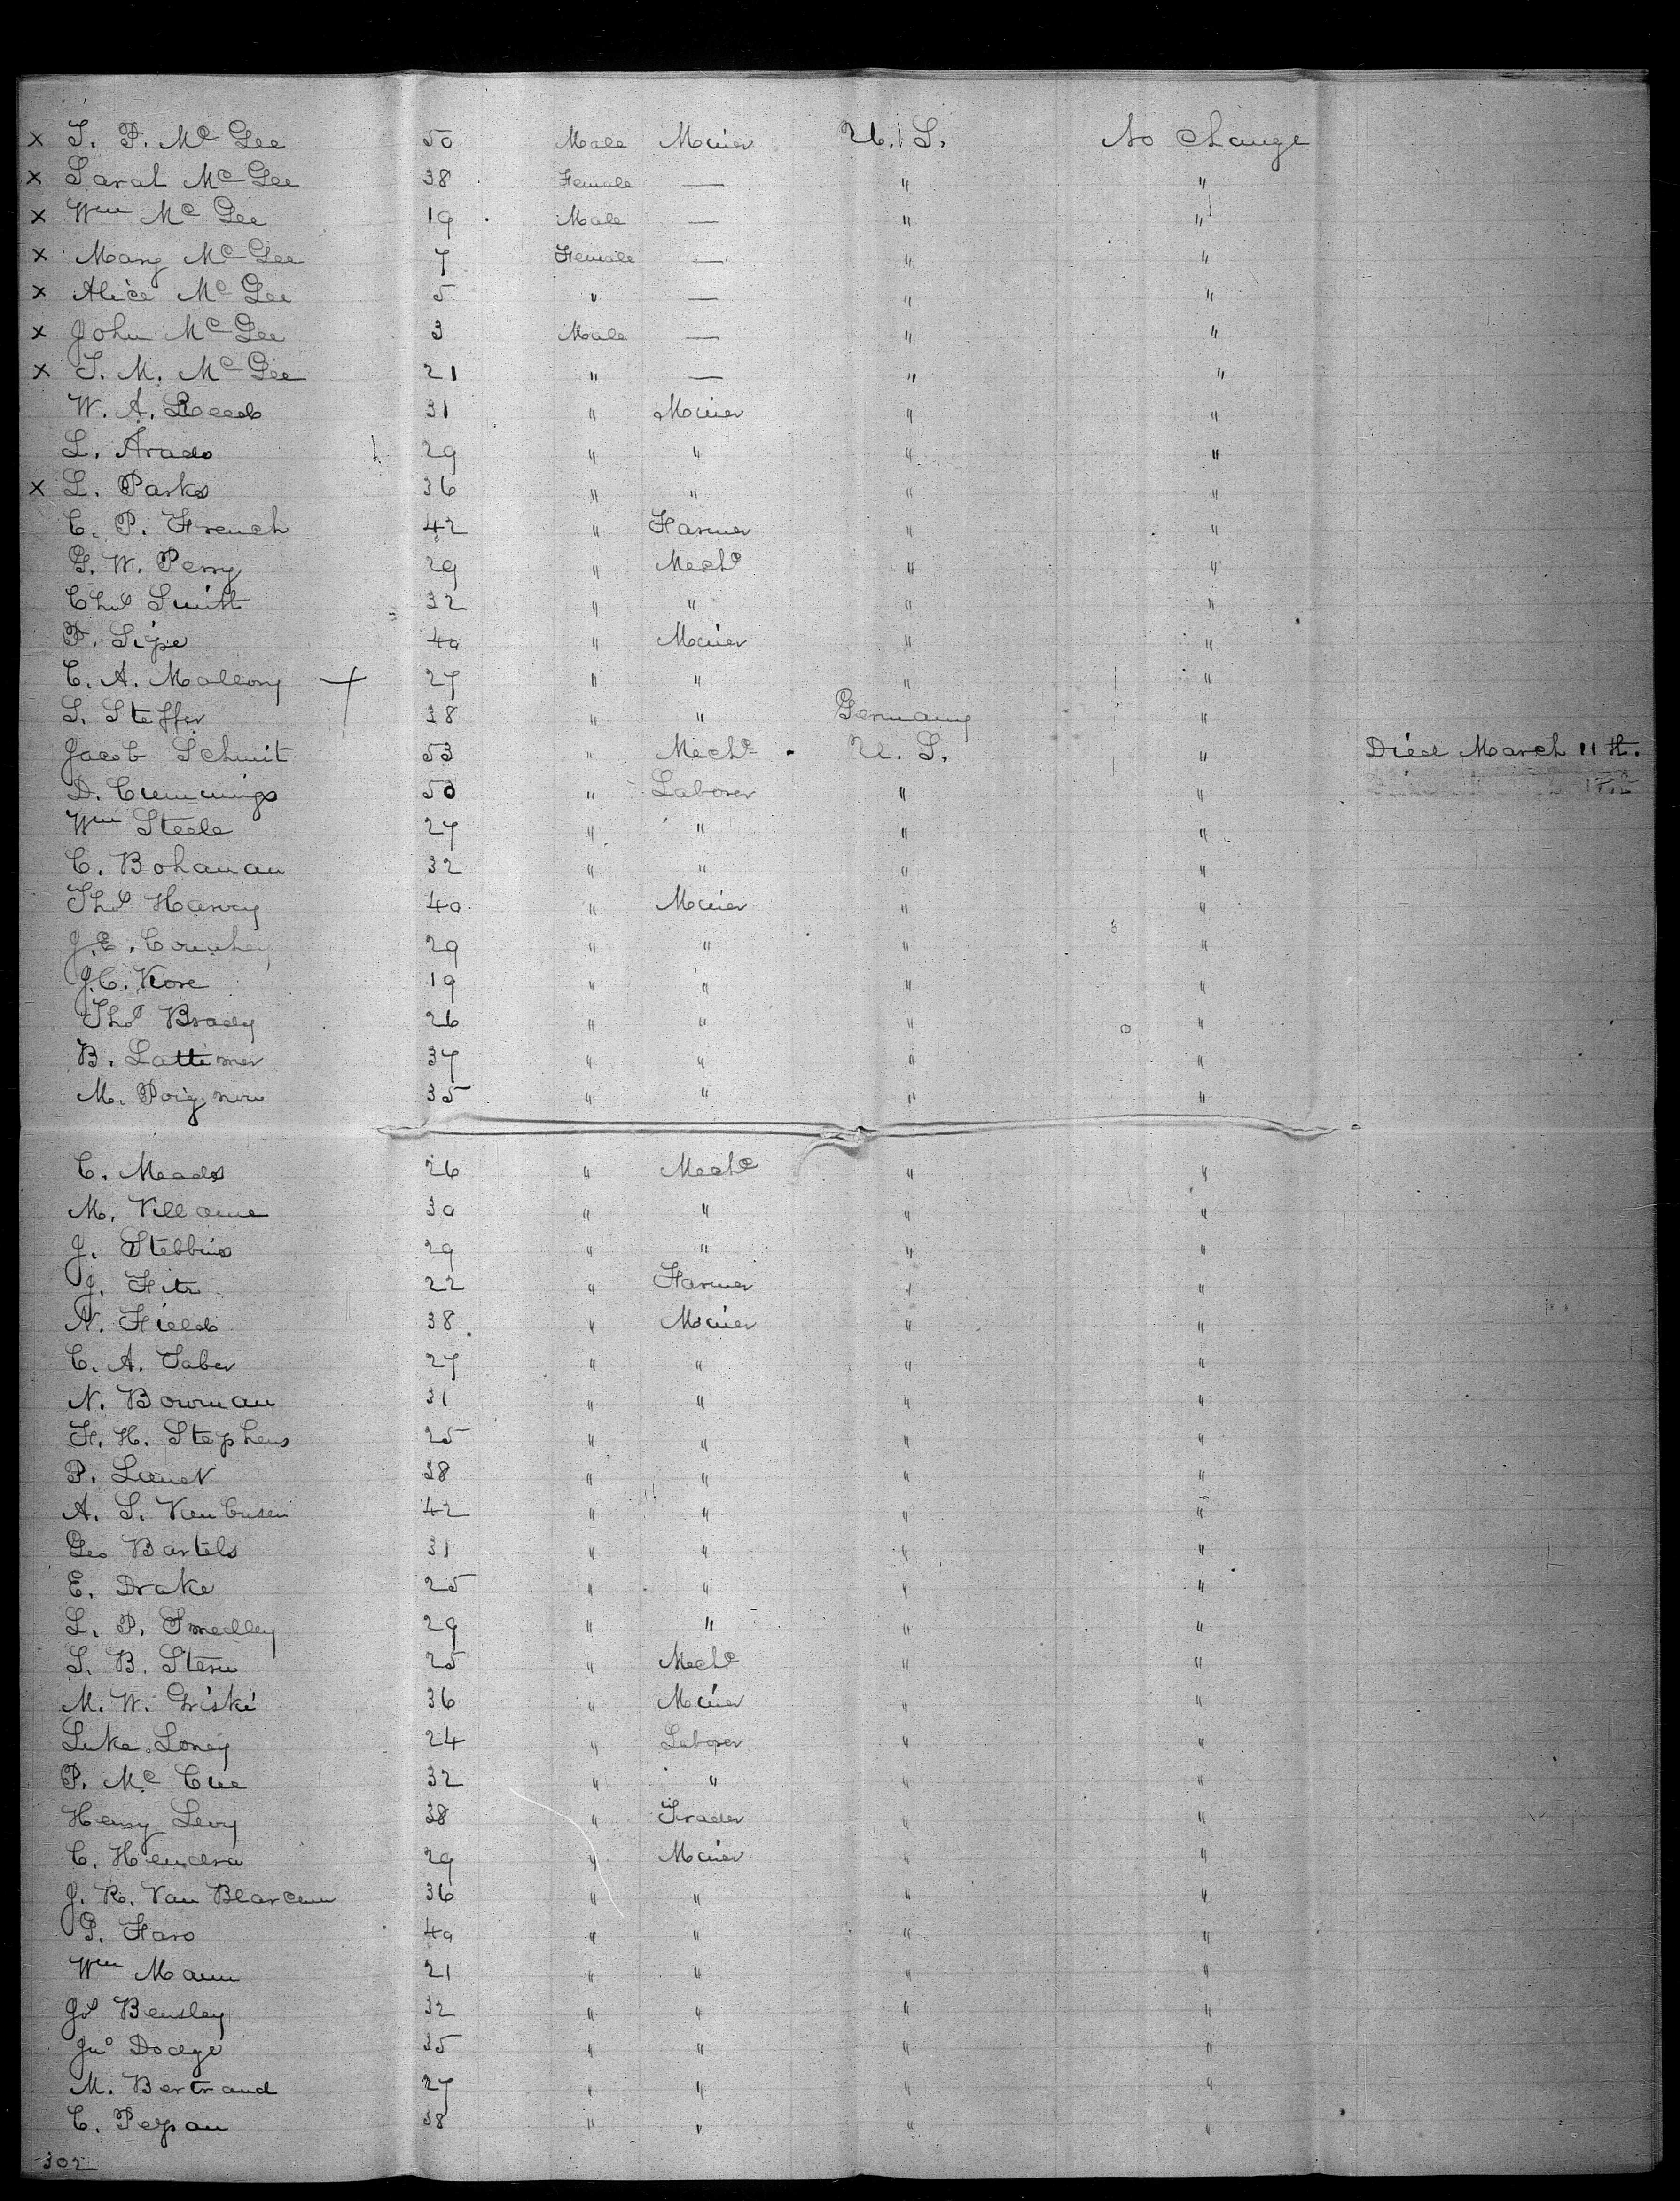 x T. F. Mc Gee 50 Male Miner U. S. No change
x Sarah Mc Gee 38 Female — " "
x Wm Mc Gee 19 Male — " "
x Mary Mc Gee 7 Female — " "
x Alice Mc Gee 5 " — " "
x John Mc Gee 3 Male — " "
x T. M. Mc Gee 21 " — " "
W. A. 31 " Miner " "
L. Arado 29 " " " "
x L. Parks 36 " " " "
C. P. French 42 " Farmer " "
G. W. Perry 29 " Mechc " "
Chs Smith 32 " " " "
F. Sipe 40 " Miner " "
C. A. Mallony 27 " " " "
S. Steffer 38 " " Germany "
Jacob Schmit 53 " Mechc U. S. " Died March 11th.
D. Cummings 50 " Laborer " "
Wm Steele 27 " " " "
C. Bohanan 32 " " " "
Ths Harvey 40 " Miner " "
J. E. Conahey 29 " " " "
J. C. Kore 19 " " " "
Ths Brady 26 " " " "
B. Lattimer 37 " " " "
M. 35 " " " "
C. Meads 26 " Mechc " "
M. Villome 30 " " " "
J. Stebbins 29 " " " "
J. Fitz 22 " Farmer " "
N. Fields 38 " Miner " "
C. A. Taber 27 " " " "
N. Bowman 31 " " " "
F. H. Stephens 25 " " " "
P. 38 " " " "
A. S. 42 " " " "
Geo Bartels 31 " " " "
E. Drake 25 " " " "
L. P. Smedley 29 " " " "
S. B. Stern 25 " Mechc " "
M. W. Griski 36 " Miner " "
Luke Loney 24 " Laborer " "
P. Mc Cue 32 " " " "
Henry Levy 38 " Trader " "
C. Hendra 29 " Miner " "
J. R. Van Blarcum 36 " " " "
P. Faro 40 " " " "
Wm Mann 21 " " " "
Js Bensley 32 " " " "
Jno Dodge 35 " " " "
M. Bertrand 27 " " " "
C. 38 " " " "
302